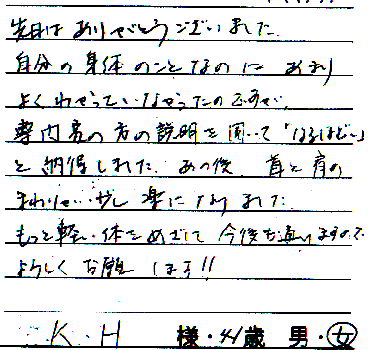 先日は ありがとうございました.
自分の身体のことなのに あまり
よくわかっていなかったのですが、
専門家の方の説明を聞いて「なるほど〜」
と納得しました. あの後、首と肩の
まわりが少し楽になりました.
もっと軽い体をめざして今後も通いますので
よろしくお願いします!!
K.H 様・41歳 男・女